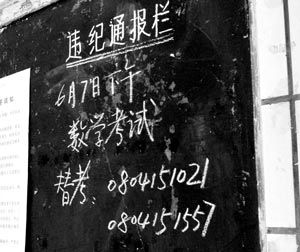 违纪通报栏
6月7日下午
数学考试
替考：0804151021
0804151557